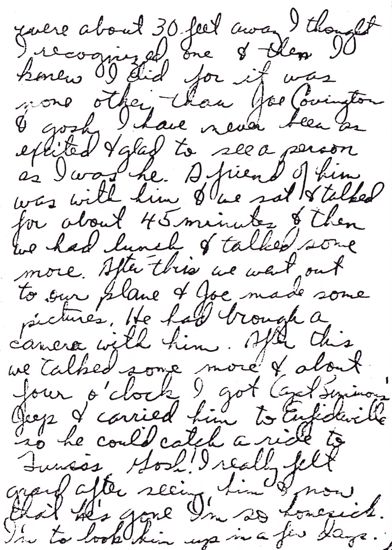 were about 30 feet away I thought
I recognized one & then I
knew I did for it was
none other than Joe Covington
& gosh, I have never been as
excited & glad to see a person
as I was he. A friend of him
was with him & we sat & talked
for about 45 minutes & then
we had lunch & talked some
more. After this we went out
to our plane & Joe made some
pictures. He had brough a
camera with him. After this
we talked some more & about
four o'clock I got Capt Simmons'
Jeep & carried him to Enfidaville
so he could catch a ride to
Tunis. Gosh! I really felt
good after seeing him & now
that he's gone I'm so homesick.
I'm to look him up in a few days.